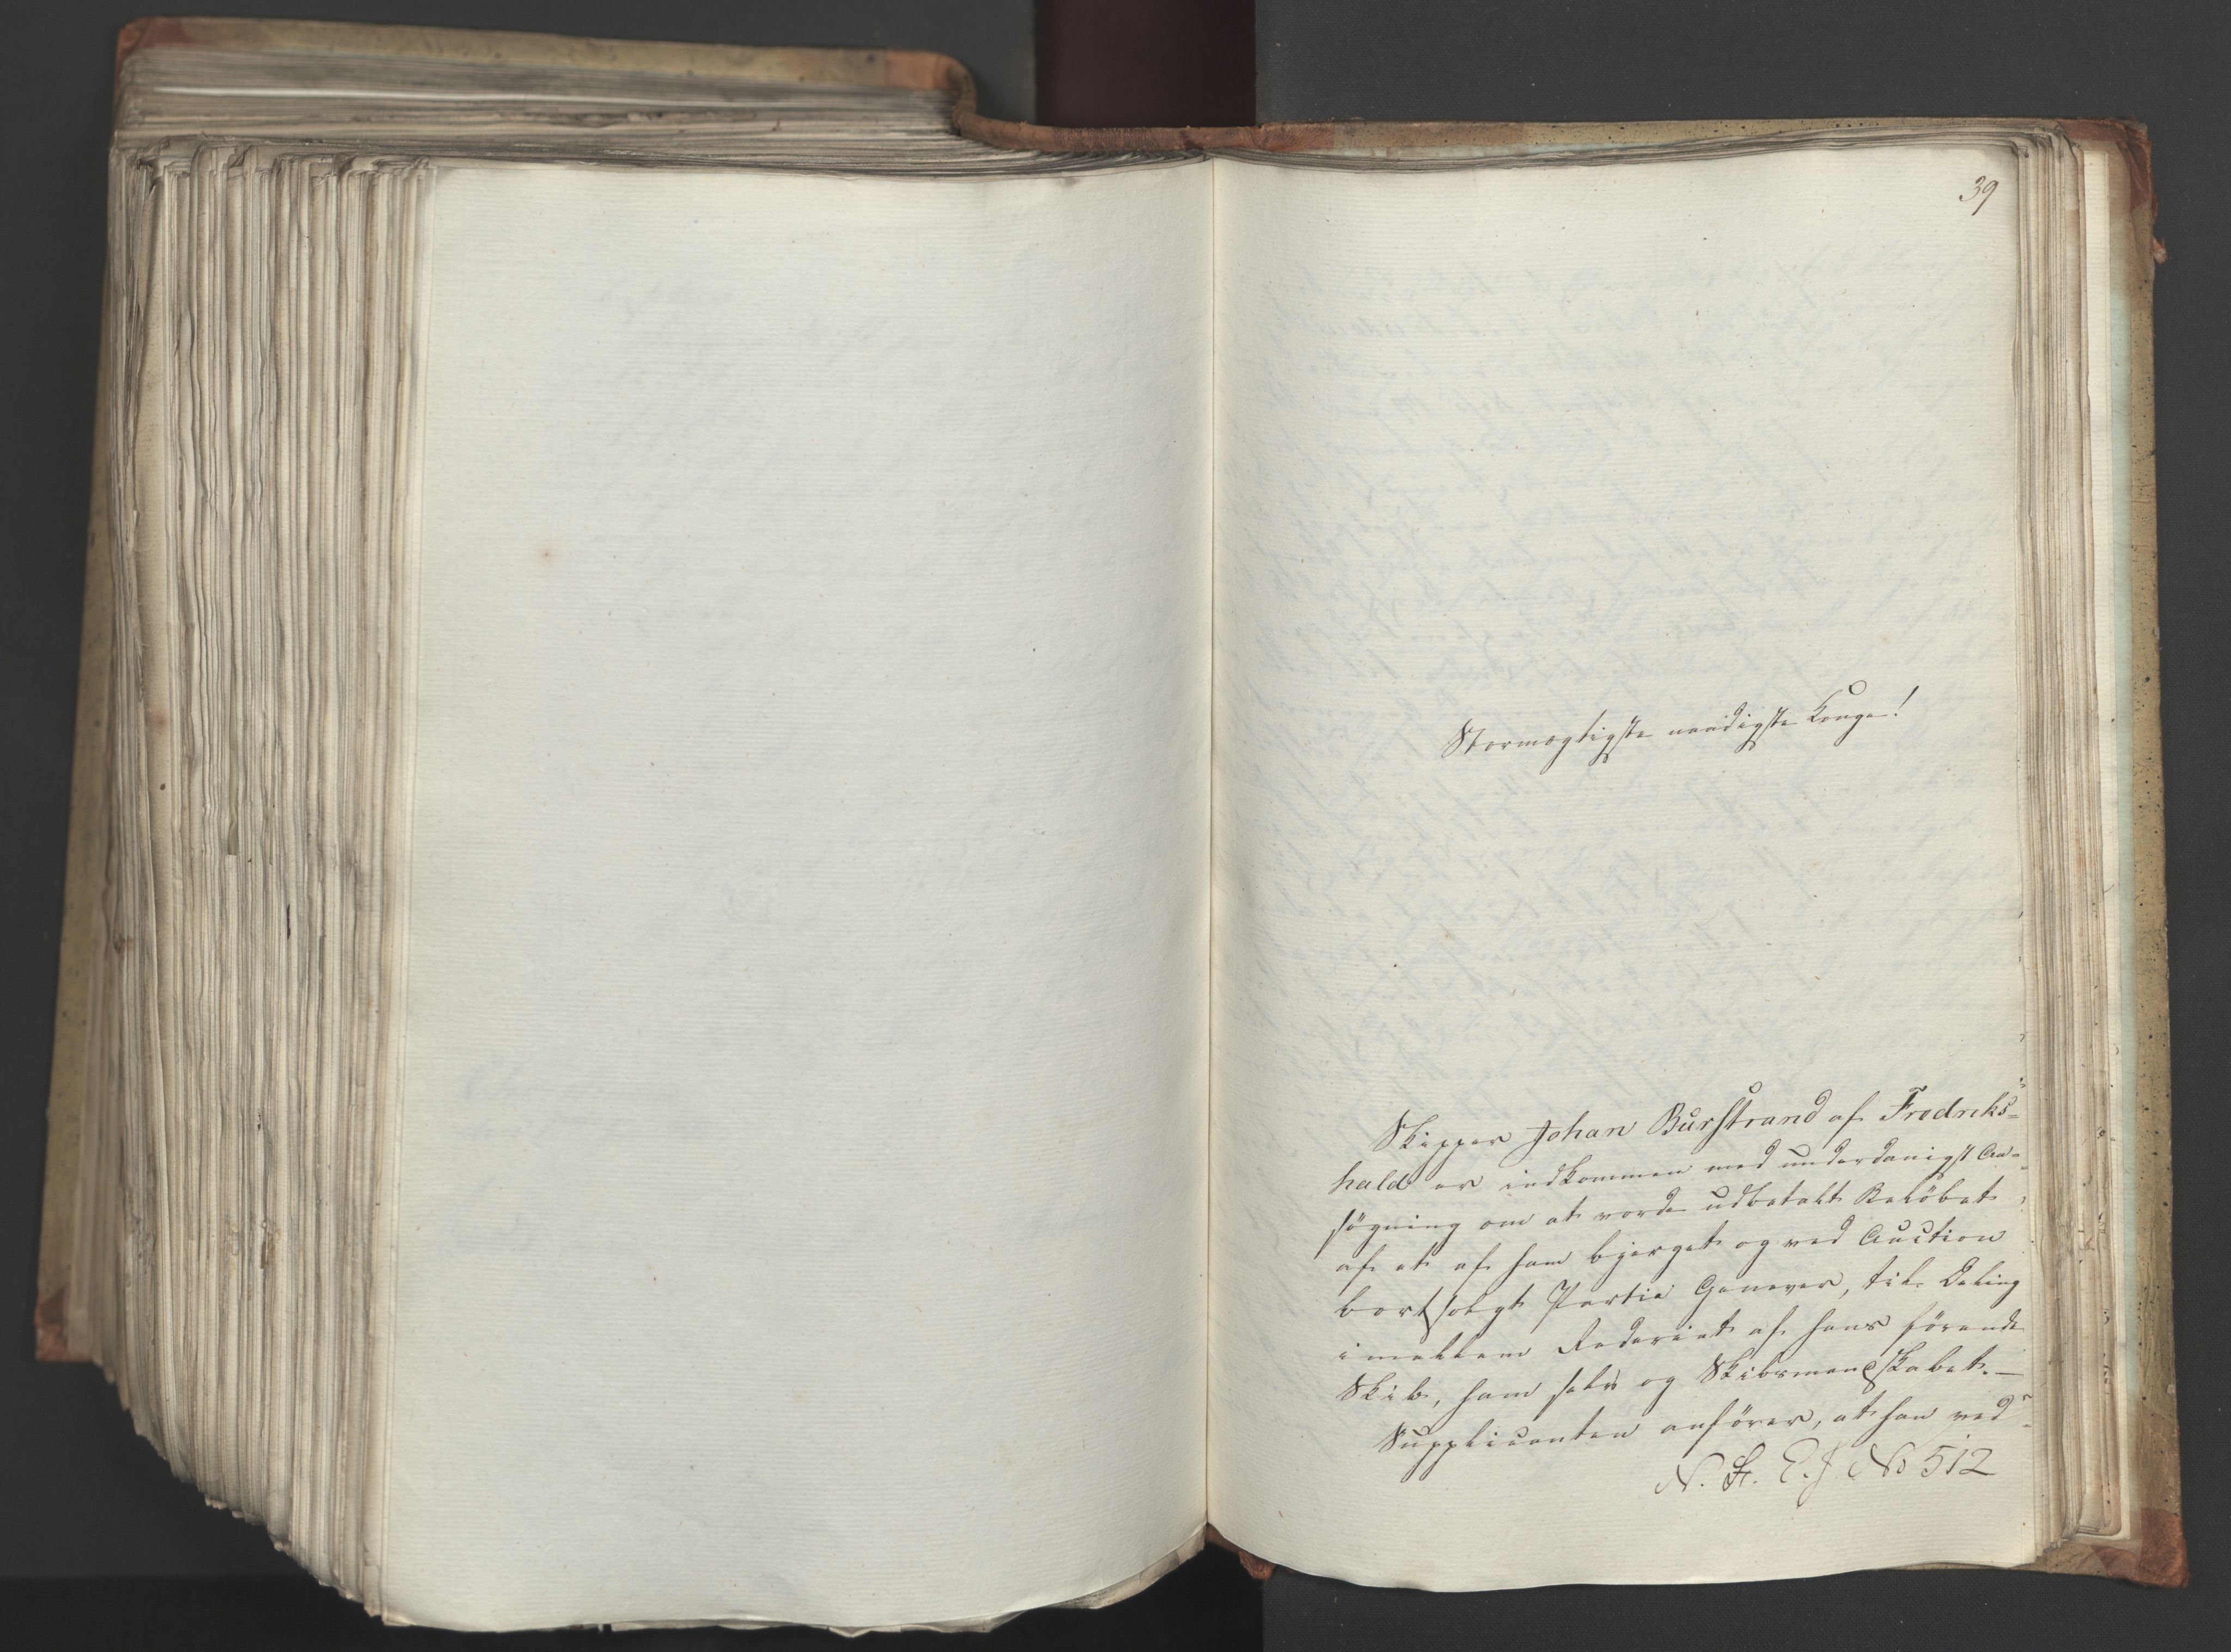 39
Stormægtigste naadigste Konge!
Skipper Johan Burstrand af Fredriks-
hald er indkommen med underdanigst An-
søgning om at vorde udbetalt Beløbet
af et af ham bjerget og ved Auction
bortsolgt Partie Genever, til Deling
imellem Rederiet af hans førende
Skib, ham selv og Skibsmandskabet. —
Supplicanten anfører, at han ved
N. S. E. J. No 512